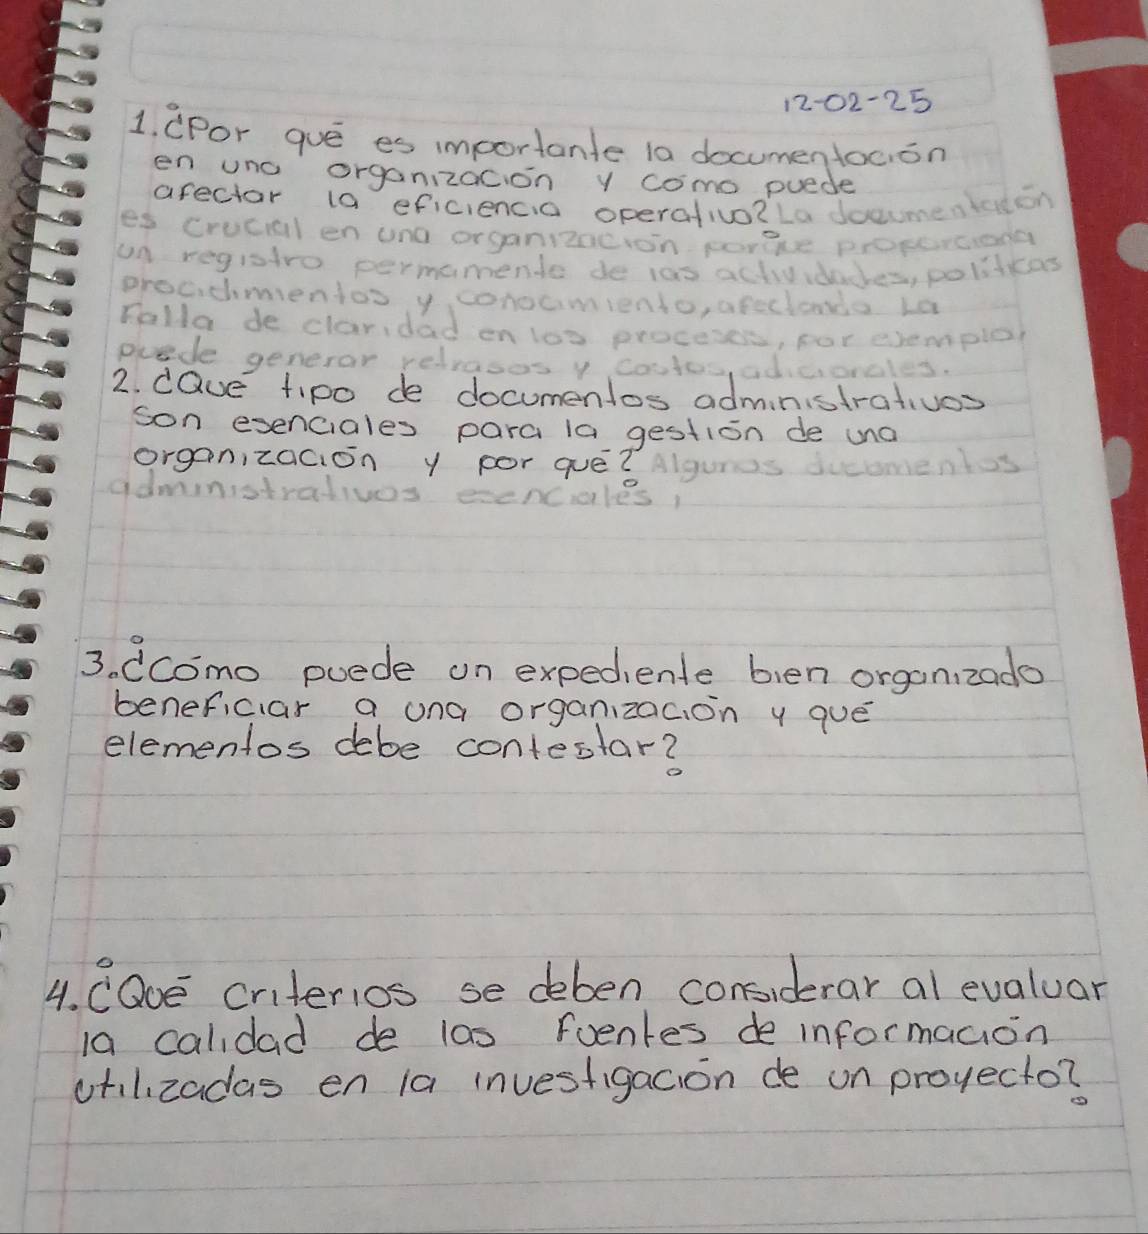 12-02-25
1. ¿Por qué es importante la documentación
en una organización y cómo puede
afectar la eficiencia operativa? La documentación
es crucial en una organización porque proporciona
un registro permamente de las actividades, políticas
procidimientos y conocimiento, afectando La
Falla de claridad en los procesos, por ejemplo,
puede generar retrasos y costos adicionales.
2. ¿Qué tipo de documentos administrativos
son esenciales para la gestión de una
organización y por qué? Algunos documentos
administrativos esenciales,
3. ¿Cómo puede un expediente bien organizado
beneficiar a una organización y qué
elementos debe contestar?
4. ¿Qué criterios se deben considerar al evaluar
la calidad de las fuentes de información
utilizadas en la investigación de un proyecto?